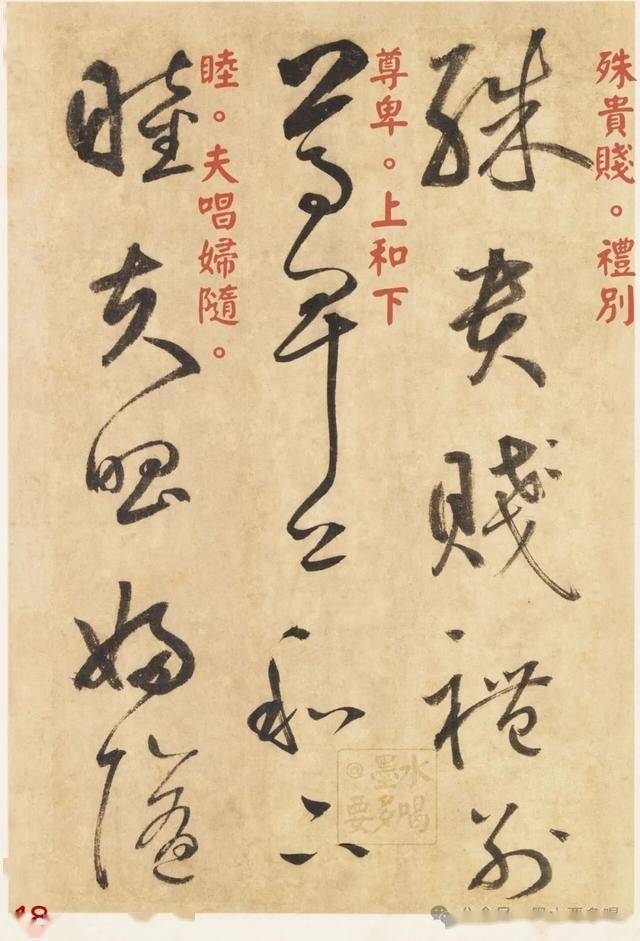 殊貴賤。禮別
殊貴賤禮別
尊卑。上和下
尊卑上和下
睦。夫唱婦隨。
睦夫唱婦隨
@墨水
要多喝
18